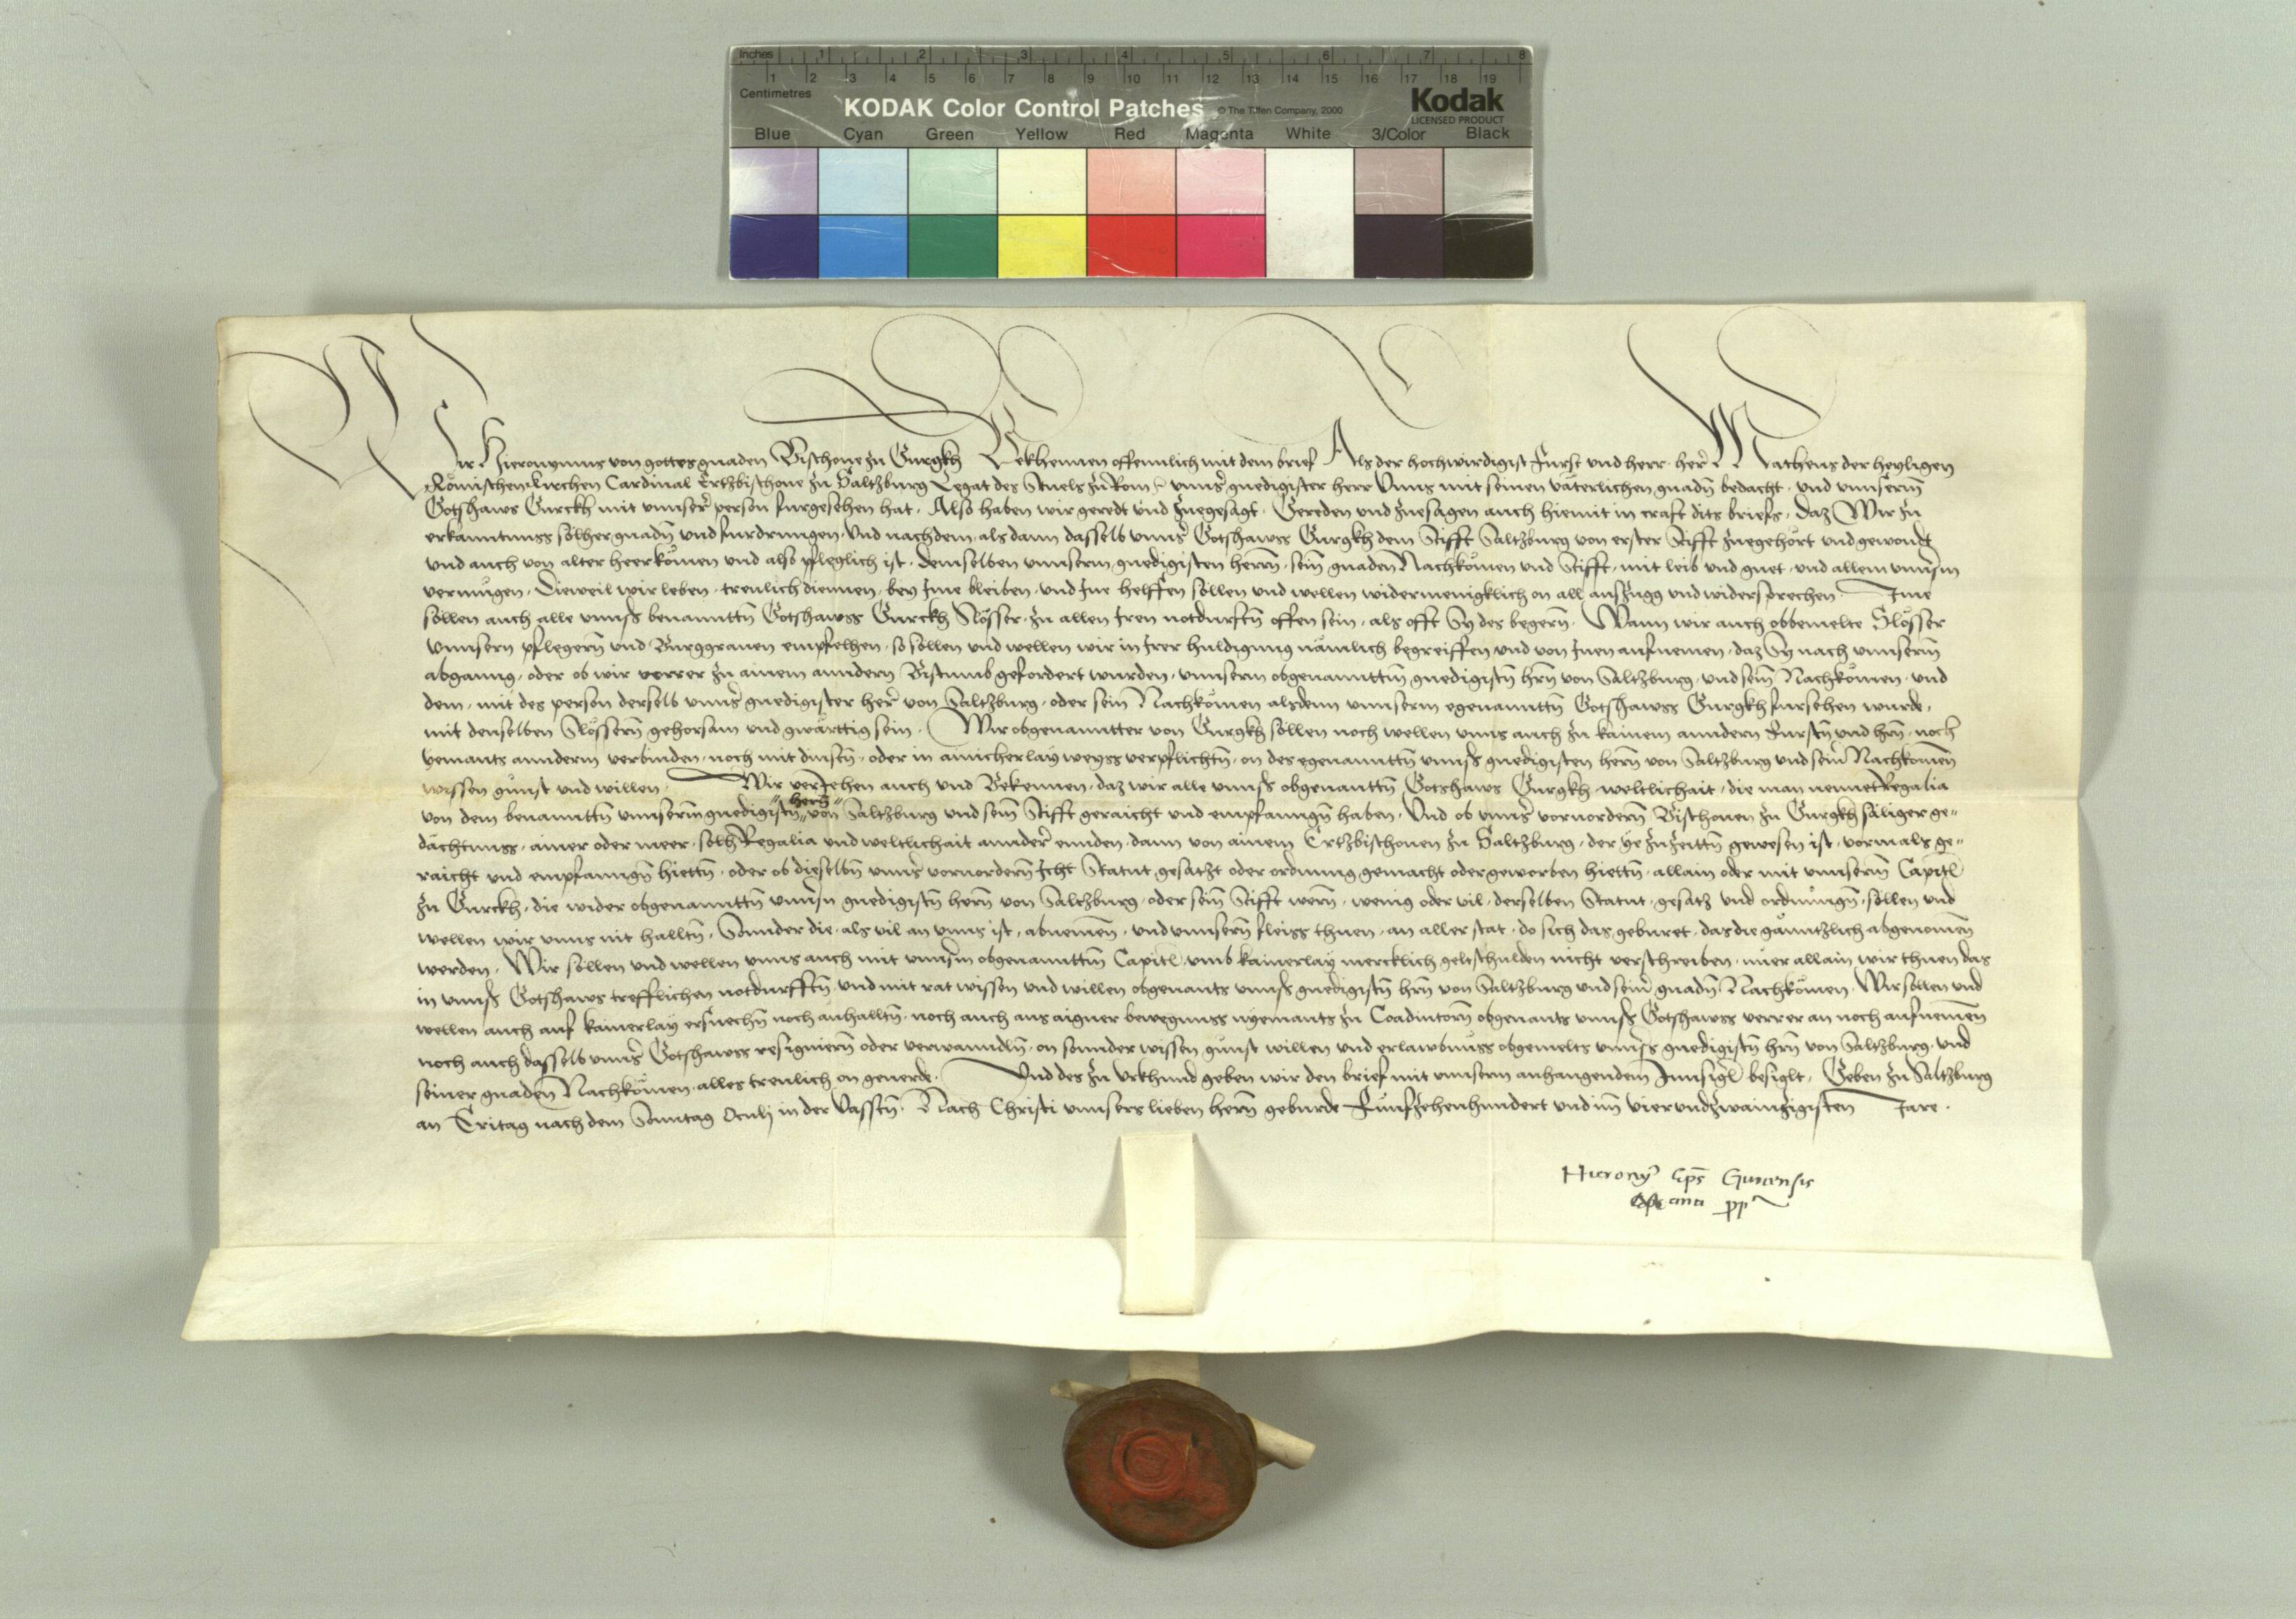 Inches 1 2 3 4 5 6 7 8
1 2 3 4 5 6 7 8 9 10 11 12 13 14 15 16 17 18 19
Centimetres
KODAK Color Control Patches © The Tiffen Company, 2000 Kodak
LICENSED PRODUCT
Blue Cyan Green Yellow Red Magenta White 3/Color Black
Wir Hieronymus von gottes gnaden Bischoue zu Gurgkh Bekhennen offennlich mit dem brief Als der hochwirdigist Furst und herr her̃ Matheus der heyligen
Römischen Kirchen Cardinal Ertzbischoue zu Saltzburg Legat des Stuels zu Rom unnser̃ gnedigister herr Unns mit seinen väterlichen gnadn̄ bedacht und unnserm̄
Gotshaws Gurckh mit unnser̃ person fursehen hat. Also haben wir geredt und zuegesagt. Gereden und zuesagen auch hiemit in craft dits briefs, daz Wir zu
erkanntnuss sölher gnadn̄ und furdrungen, Und nachdem als dann dasselb unnser̃ Gotshawss Gurgkh dem Stifft Saltzburg von erster Stifft zuegehört und gewondt
und auch von alter heerkömen und also pfleglich ist, demselben unnserm gnedigisten herrn̄, sein̄ gnaden Nachkömen und Stifft, mit leib und guet, und allem unnserm
vermügen, dieweil wir leben, treulich diennen, bey Ime bleiben, und Ine helffen söllen und wellen widermenigklich on all auszugg und widersprechen. Ime
söllen auch alle unnsers benanntn̄ Gotshawss Gurckh Slösser, zu allen Iren notdurftn̄ offen sein, als offt Sy des begern̄. Wann wir auch obbemelte Slösser
unnsern pflegern̄ und Burggrauen empfelhen, so söllen und wellen wir in Irer huldigung nämlich begreiffen und von Inen aufnemen, daz Sy nach unnserm̄
abganng, oder ob wir verrer zu ainem anndern Bistumb gefordert wurden, unnserm obgenanntn̄ gnedigistn̄ hrn̄ von Saltzburg, und sein̄ Nachkömen, und
dem, mit des person derselb unnser̃ gnedigister her̃ von Saltzburg, oder sein̄ Nachkömen alsdenn unnserm egenanntn̄ Gotshawss Gurgkh fursehen wurde,
mit denselben Slössern̄ gehorsam und gwärttig sein. Wir obgenannter von Gurgkh söllen noch wellen unns auch zu kainem anndern Furstn̄ und hrn̄, noch
yemants anndern verbinden, noch mit dinstn̄, oder in ainicherlay weyss verpflichtn̄, on des egenanntn̄ unnsers gnedigisten herrn̄ von Saltzburg und sein̄ Nachkömen
wissen günst und willen. Wir veriehen auch und Bekennen, daz wir alle unnsers obgenanntn̄ Gotshaws Gurgkh weltlichait, die man nennet Regalia
hern̄
von dem benanntn̄ unnserm gnedigistn̄ von Saltzburg und sein̄ Stifft geraicht und empfanngn̄ haben, Und ob unnser̃ vorvordern̄ Bischouen zu Gurgkh säliger ge-
dächtnuss, ainer oder meer, solh Regalia und weltlichait annder̃ ennden, dann von ainem Ertzbischouen zu Saltzburg, der ye zuzeittn̄ gewesen ist, vormals ge-
raicht und empfanngn̄ hiettn̄, oder ob dieselbn̄ unnser̃ vorvordern̄ Icht Statut gesatzt oder ordnung gemacht oder geworben hiettn̄, allain oder mit unnserm̄ Capitl
zu Gurckh, die wider obgenanntn̄ unnsern gnedigistn̄ herrn̄ von Saltzburg, oder sein̄ Stifft wern̄, wenig oder vil, derselben Statut, gesatz und ordnungn̄, söllen und
wellen wir unns nit halltn̄, Sonnder die, als vil an unns ist, abnemen, und unnsern̄ fleiss thuen, an aller stat, do sich das geburet, das die gänntzlich abgenomen
werden. Wir söllen und wellen unns auch mit unnserm obgenanntn̄ Capitl umb kainerlay mercklich geltschulden nicht verschreiben, nuer allain wir thuen das
in unnsers Gotshaws trefflichen notdurfftn̄ und mit rat wissen und willen obgenants unnsers gnedigistn̄ hrn̄ von Saltzburg und seiner̃ gnadn̄ Nachkömen. Wir söllen und
wellen auch auf kainerlay ersuechn̄ noch anhalltn̄, noch auch aus aigner bewegnuss nyemants zu Coadiutorn̄ obgenants unnsers Gotshawss verrer an noch aufnemen
noch auch dasselb unnser̃ Gotshawss resignieren̄ oder verwanndln̄, on sonnder wissen günst willen und erlawbnüss obgemelts unnsers gnedigistn̄ hrn̄ von Saltzburg, und
seiner gnaden Nachkömen, alles treulich on geuerde. Und des zu Urkhund geben wir den brief mit unnserm anhangendem Innsigl besiglt, Geben zu Saltzburg
an Eritag nach dem Sonntag Oculj in der Vasstn̄. Nach Christi unnsers lieben hern̄ geburde Funfzehenhundert und im̄ vierundzwainzigisten Jare.
Hierony̾ Ep̄s Gurcensis
manu pp